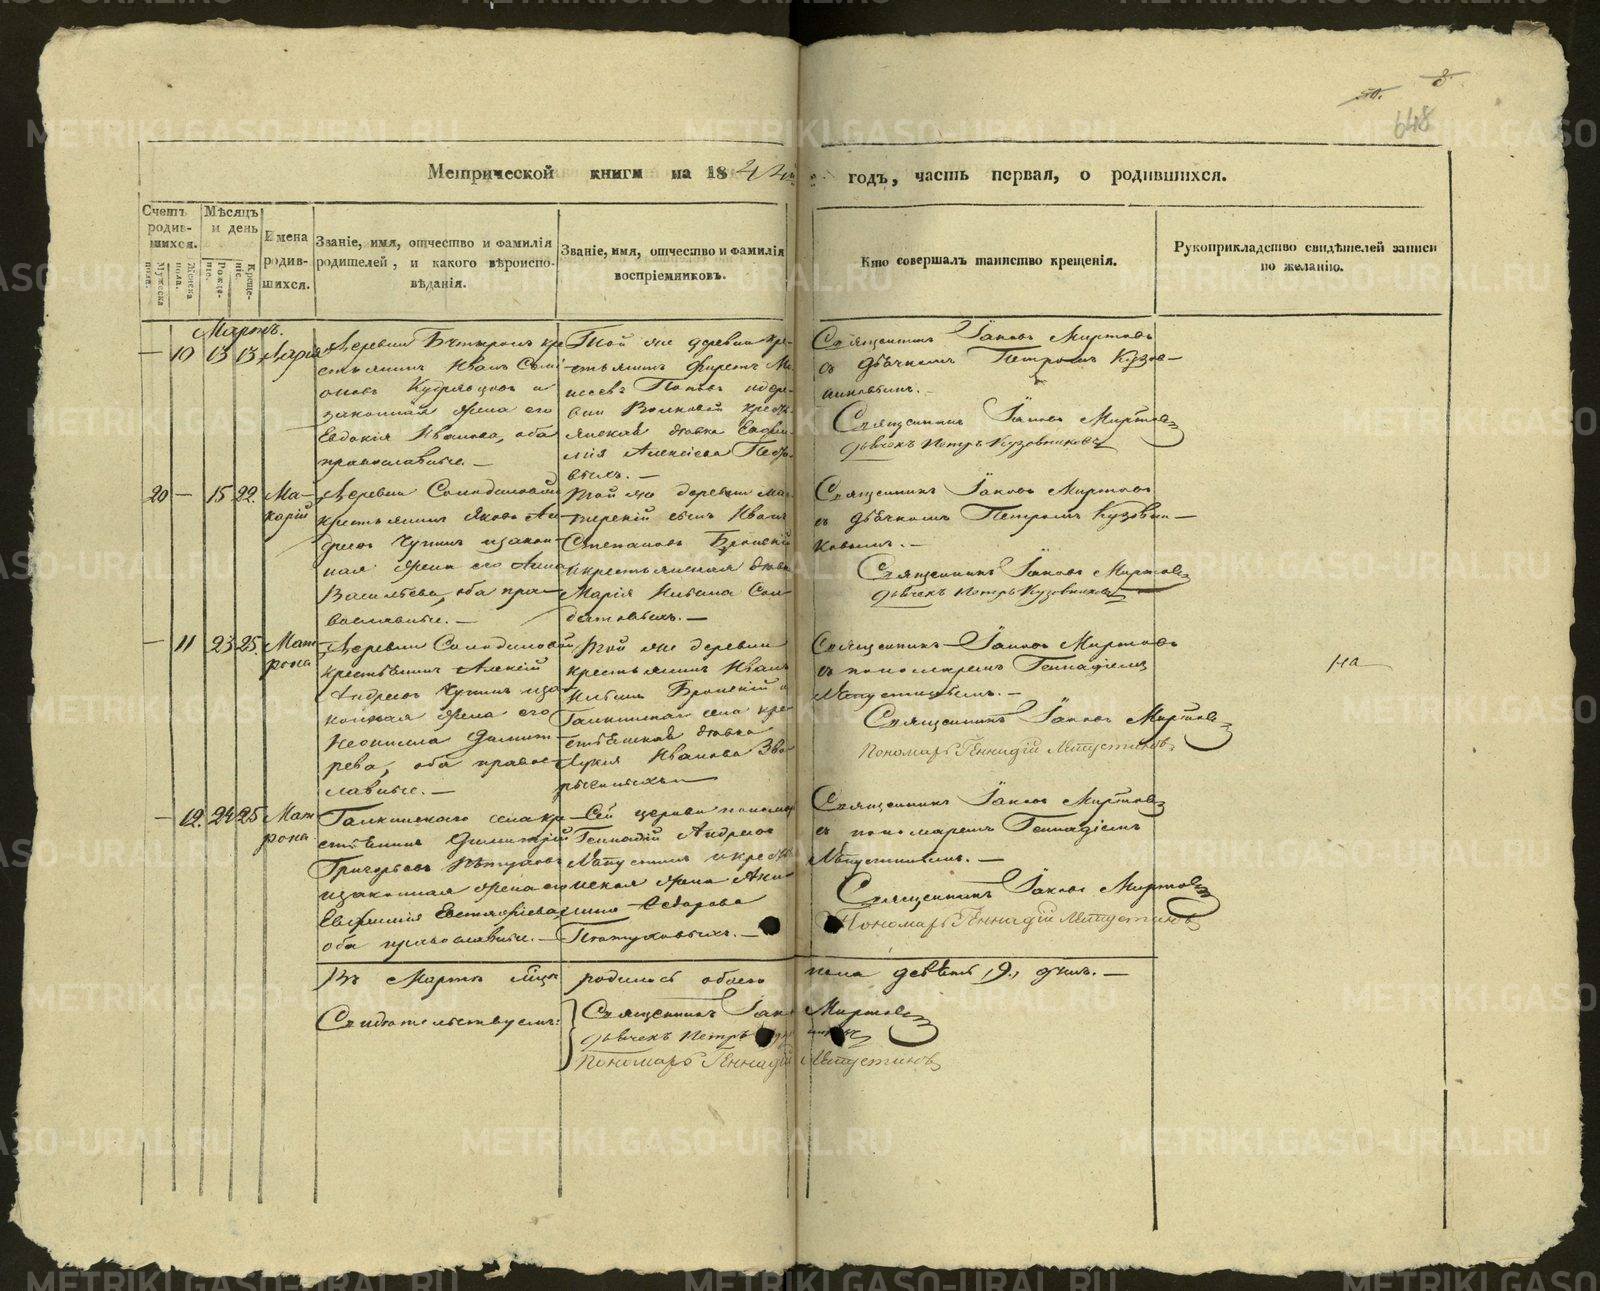 8.
50.
648
Метрической книги на 1842 годъ, часть первая, о родившихся.
Счетъ родившихся.
Мужеска пола.
Женска пола.
Мѣсяцъ и день
Рожденіе.
Крещеніе.
Имена родившихся.
Званіе, имя, отчество и фамилія
родителей, и какого вѣроиспо-
вѣданія.
Званіе, имя, отчество и фамилія
воспріемниковъ.
Кто совершалъ таинство крещенія.
Рукоприкладство свидѣтелей записи
по желанію.
Мартъ.
— 10 13 13 Дарія
Деревни
стьянинъ Иванъ Семі
оновъ Кудрявцовъ и
законная жена его
Евдокія Иванова, оба
православные. —
Той же деревни кре-
стьянинъ
Поповъ и дере-
вни Волковой кресть
янская дѣвка Евфи-
мія Алексіева
выхъ. —
Священникъ Іаковъ Миртовъ
съ дьячкомъ Петромъ Кузов-
никовымъ. —
Священникъ Іаковъ Миртовъ
Дьячекъ Петръ Кузовниковъ
20 — 15 22. Ма-
карій
Деревни Солодиловой
крестьянинъ Яковъ Ан
дреевъ Чупинъ и закон
ная жена его Анна
Васильева, оба пра-
вославные. —
Той же деревни мас
терскій сынъ Иванъ
Степановъ Бронскій
и крестьянская дѣвка
Марія Сол
датовыхъ. —
Священникъ Іаковъ Миртовъ
съ дьячкомъ Петромъ Кузовни-
ковымъ. —
Священникъ Іаковъ Миртовъ
Дьячекъ Петръ Кузовниковъ
— 11 23 25. Мат
рона
Деревни Солодиловой
крестьянинъ Алексій
Андреевъ Чупинъ и за
конная жена его
Неонилла Димит-
рева, оба правос
лавные. —
Той же деревни
крестьянинъ Иванъ
Бронскій и
Галкинскаго села кре
стьянская дѣвка
Лукія Иванова Зве
ревыхъ
Священникъ Іаковъ Миртовъ
съ пономаремъ Геннадіемъ
Священникъ Іаковъ Миртовъ
Пономарь Геннадій
на
— 12. 24 25 Мат
рона
Галкинскаго села кре
стьянинъ Димитрій
Григорьевъ Пѣтуховъ
и законная жена его
Евфимія Евстафіева,
оба православные. —
Сей церкви пономарь
Геннадій Андреевъ
и кресть
янская жена
Ѳедорова
Пѣтуховыхъ. —
Священникъ Іаковъ Миртовъ
съ пономаремъ Геннадіемъ
Священникъ Іаковъ Миртовъ
Пономарь Геннадій
Въ Мартѣ мѣсяцѣ родилось обоего пола девять, 9, душъ. —
Свидетельствуемъ:
Священникъ Іаковъ Миртовъ
Дьячекъ Петръ
Пономарь Геннадій